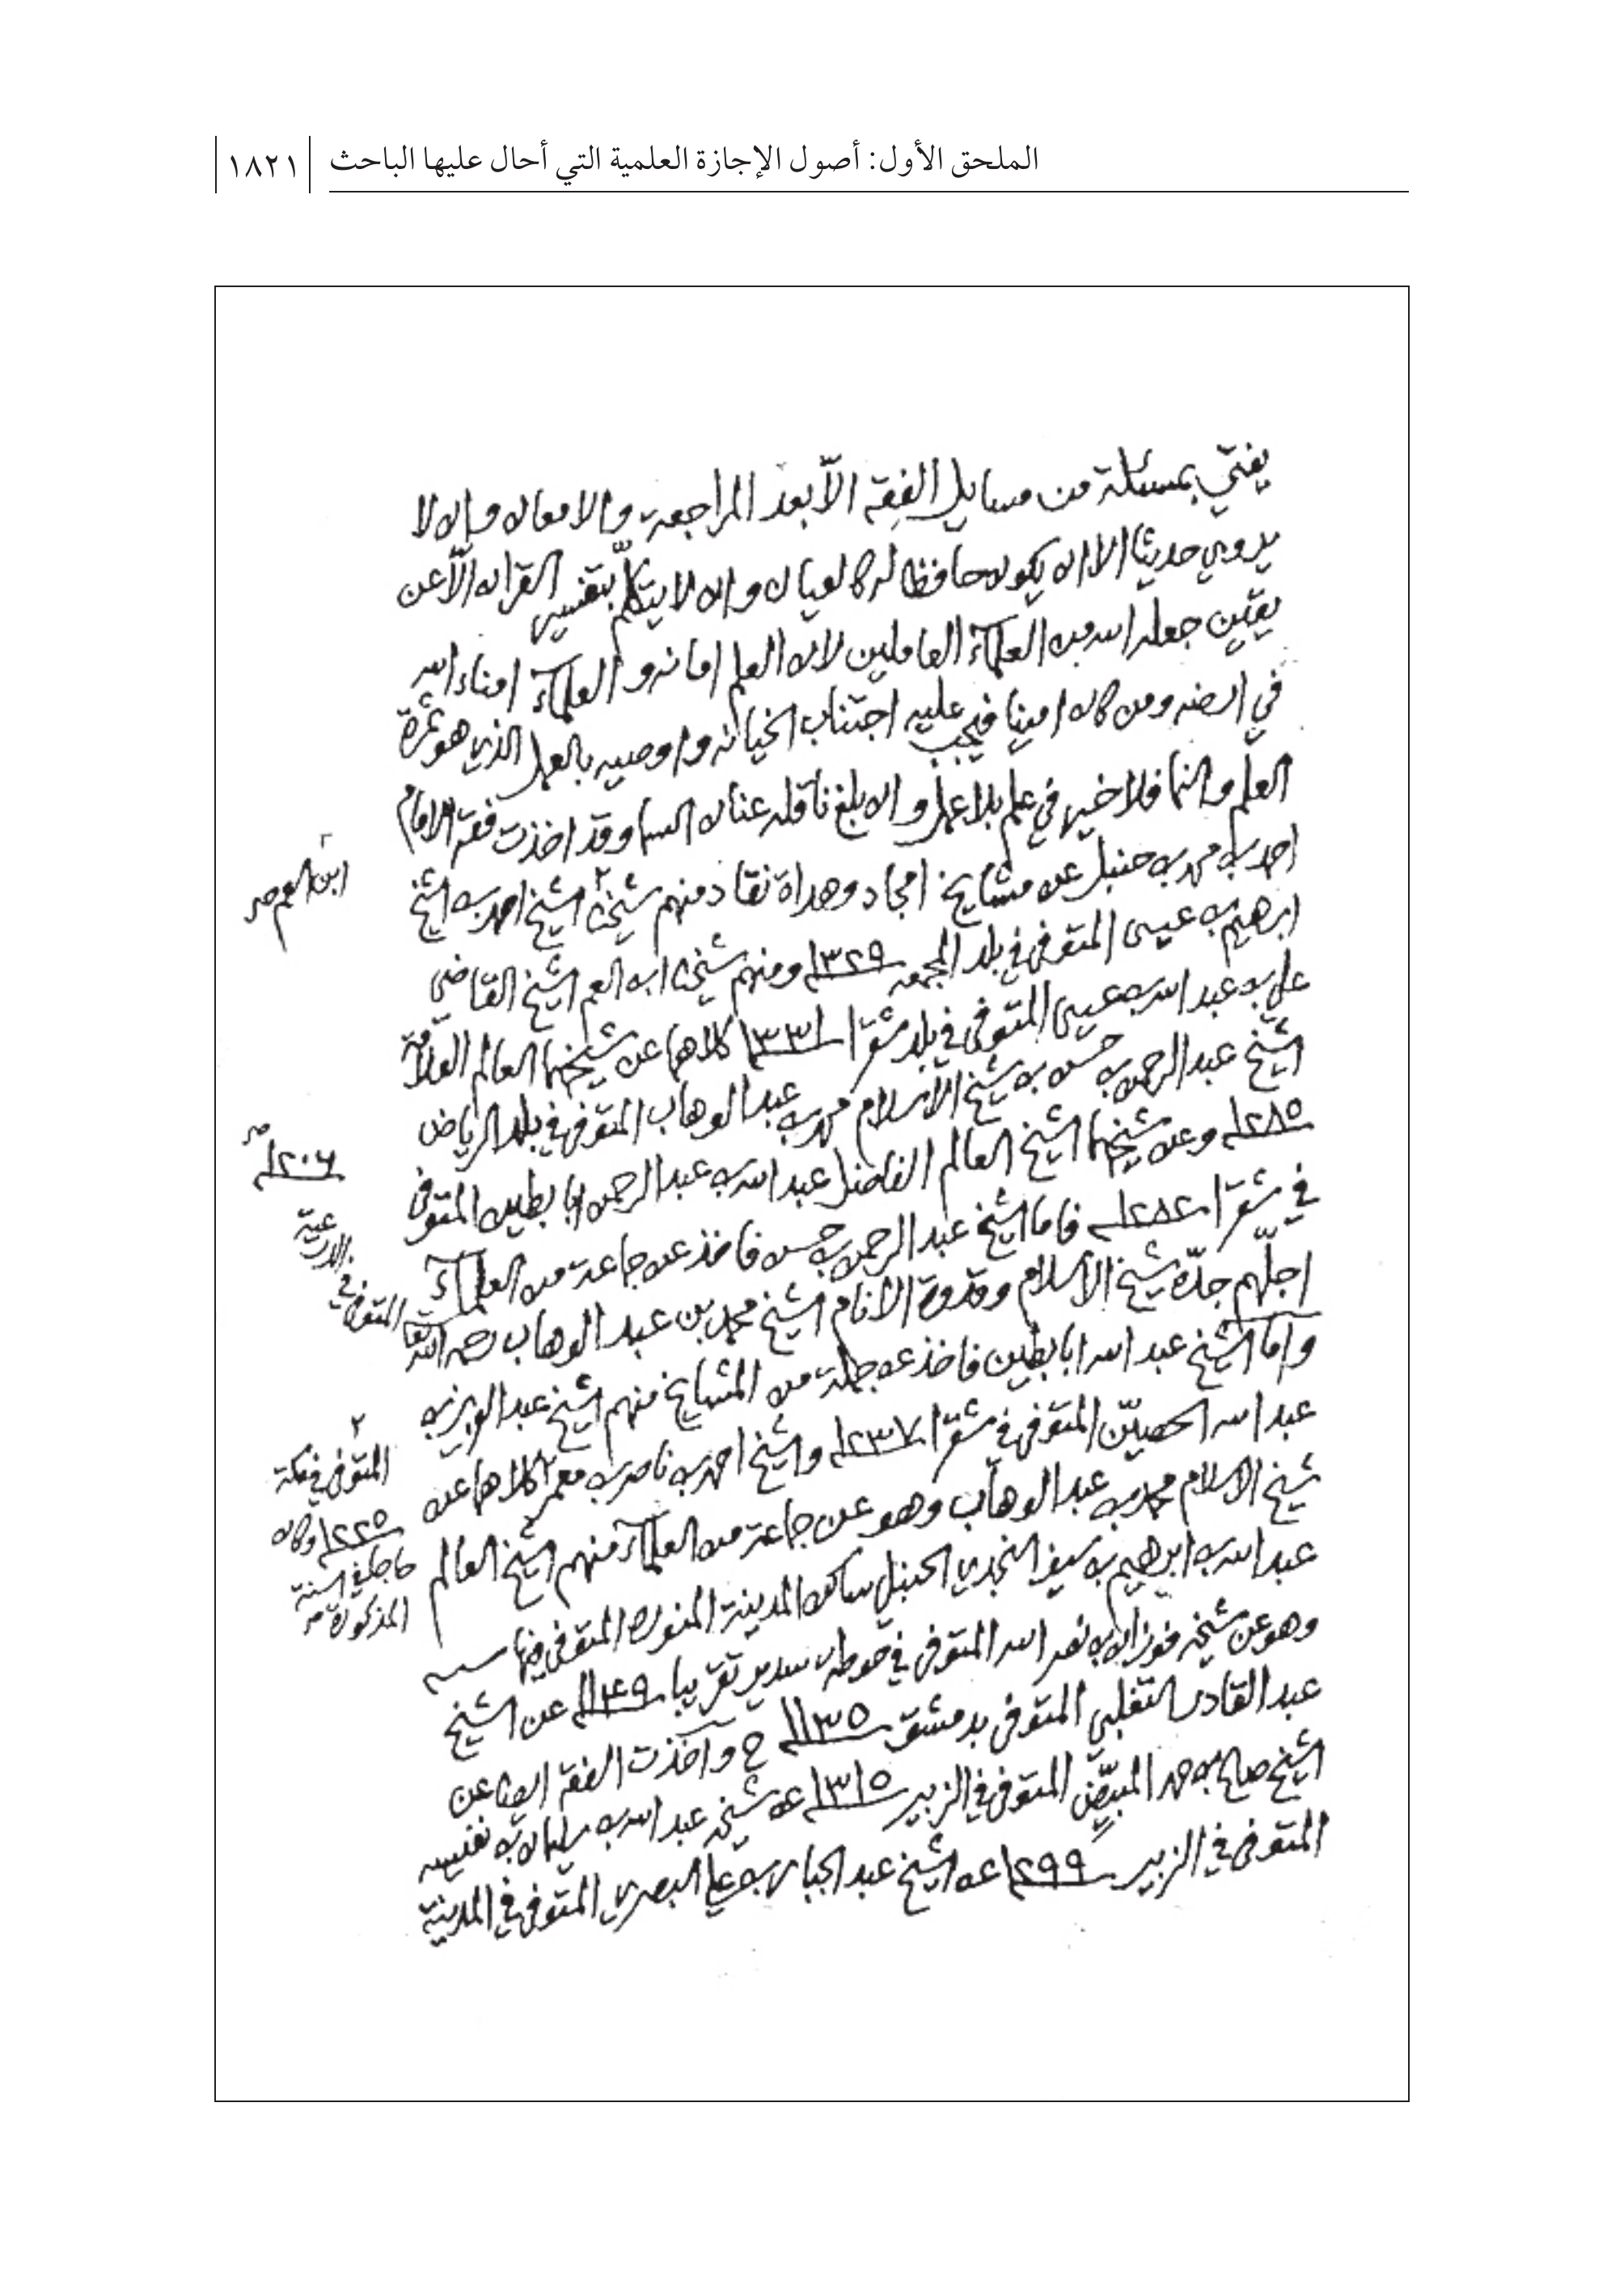 الملحق الأول: أصول الإجازة العلمية التي أحال عليها الباحث
١٨٢١
يفتي بمسئلة من مسايل الفقه الّا بعد المراجعة والامعان وان لا
يروي حديثا الا ان يكون حافظا له كالعيان وان لا يتكلّم بتفسير القران الّا عن
يقين جعله الله من العلمآء العاملين لان العلم امانه و العلمآء امناء الله
في ارضه ومن كان امينا فيجب عليه اجتناب الخيانه واوصيه بالعمل الذي هو ثمرة
العلم والنما فلا خير في علم بلا عمل و ان بلغ ناقله عنان السما وقد اخذت فقه الامام
احمد بن محمد بن حنبل عن مشايخ امجاد وهداة نقاد منهم شيخنا ٢ الشيخ احمد بن الشيخ
ابن العم صح
ابرهيم بن عيسى المتوفى في بلد المجمعه ١٣٢٩ ومنهم شيخنا ابن العم الشيخ القاضي
علي بن عبد الله بن عيسى المتوفى في بلد شقرا ١٣٣١ كلاهما عن شيخهما العالم العلامة
الشيخ عبد الرحمن بن حسن بن شيخ الاسلام محمد بن عبد الوهاب المتوفى في بلد الرياض
١٢٨٥ وعن شيخهما الشيخ العالم الفاضل عبد الله بن عبد الرحمن ابا بطين المتوفى
في شقرا ١٢٨٢ فاما الشيخ عبد الرحمن بن حسن فاخذ عن جماعة من العلمآء
اجلّهم جدّه شيخ الاسلام وقدوة الانام الشيخ محمد بن عبد الوهاب رحمه الله تعا
المتوفى في
الدرعية
١٢٠٦ صح
وامّا الشيخ عبد الله ابا بطين فاخذ عن جملة من المشايخ منهم الشيخ عبد العزيز بن
عبد الله الحصيّن المتوفى في شقرا ١٢٣٧ والشيخ احمد بن ناصر بن معمر ٢ كلاهما عن
٢
المتوفى في مكة
١٢٢٥ وكان
حاجا في السنة
المذكورة صح
شيخ الاسلام محمد بن عبد الوهاب وهو عن جماعة من العلمآء منهم الشيخ العالم
عبد الله بن ابرهيم بن سيف النجدي الحنبلي ساكن المدينة المنورة المتوفى فيها سنه
وهو عن شيخه فوزان بن نصر الله المتوفى في حوطة سدير تقريبا ١١٤٩ عن الشيخ
عبد القادر التغلبي المتوفى بدمشق ١١٣٥ ح وأخذت الفقه ايضا عن
الشيخ صالح بن حمد المبيّض المتوفى في الزبير ١٣١٥ عن شيخه عبد الله بن سليمان بن نفيسه
المتوفى في الزبير ١٢٩٩ عن الشيخ عبد الجبار بن علي البصري المتوفى في المدينة